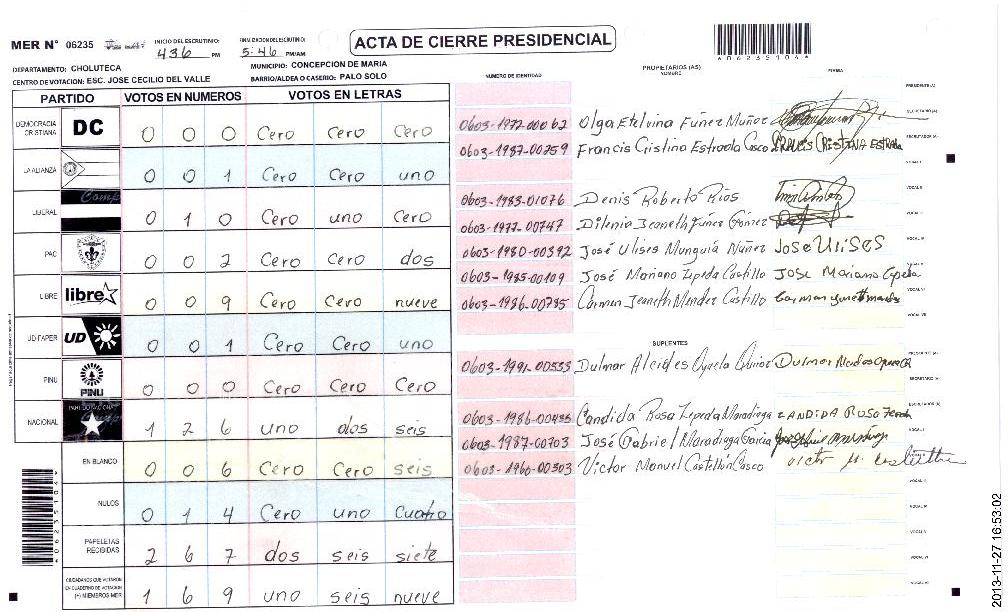 MER N° 06235
INICIO DEL ESCRUTINIO: 4 36 PM
FINALIZACION DEL ESCRUTINIO: 5:46 PM/AM
ACTA DE CIERRE PRESIDENCIAL
DEPARTAMENTO: CHOLUTECA
MUNICIPIO: CONCEPCION DE MARIA
CENTRO DE VOTACION: ESC. JOSE CECILIO DEL VALLE
BARRIO/ALDEA O CASERIO: PALO SOLO
PARTIDO VOTOS EN NUMEROS VOTOS EN LETRAS
DEMOCRACIA CRISTIANA DC 0 0 0 Cero Cero Cero
LA ALIANZA 0 0 1 Cero Cero uno
LIBERAL 0 1 0 Cero uno Cero
PAC 0 0 2 Cero Cero dos
LIBRE libre 0 0 9 Cero Cero nueve
UD-FAPER UD 0 0 1 Cero Cero uno
PINU PINU 0 0 0 Cero Cero Cero
NACIONAL 1 2 6 uno dos seis
EN BLANCO 0 0 6 Cero Cero seis
NULOS 0 1 4 Cero uno cuatro
PAPELETAS RECIBIDAS 2 6 7 dos seis siete
CIUDADANOS QUE VOTARON EN CUADERNO DE VOTACION (+) MIEMBROS MER 1 6 9 uno seis nueve
NUMERO DE IDENTIDAD PROPIETARIOS (AS) NOMBRE FIRMA
PRESIDENTE (A)
0603-1977-00062 Olga Etelvina Fúnez Muñoz SECRETARIO (A)
0603-1987-00259 Francis Cristina Estrada Casco ESCRUTADOR (A)
0603-1983-01076 Denis Roberto Rios
0603-1977-00747 Dilenia Jeaneth Funez Gomez
0603-1980-00392 José Ulises Munguia Nuñez JOSE ULISES
0603-1985-00109 José Mariano Zepeda Castillo JOSE Mariano Cepeda
0603-1986-00785 Carmen Jeaneth Mendez Castillo
SUPLENTES
0603-1991-00533 Dulmar Alcides
0603-1986-00435 Candida Rosa Zepeda Maradiaga
0603-1987-00703 José Gabriel Maradiaga Garcia
0603-1960-00303 Victor Manuel Castellón Casco
2013-11-27 16:53:02